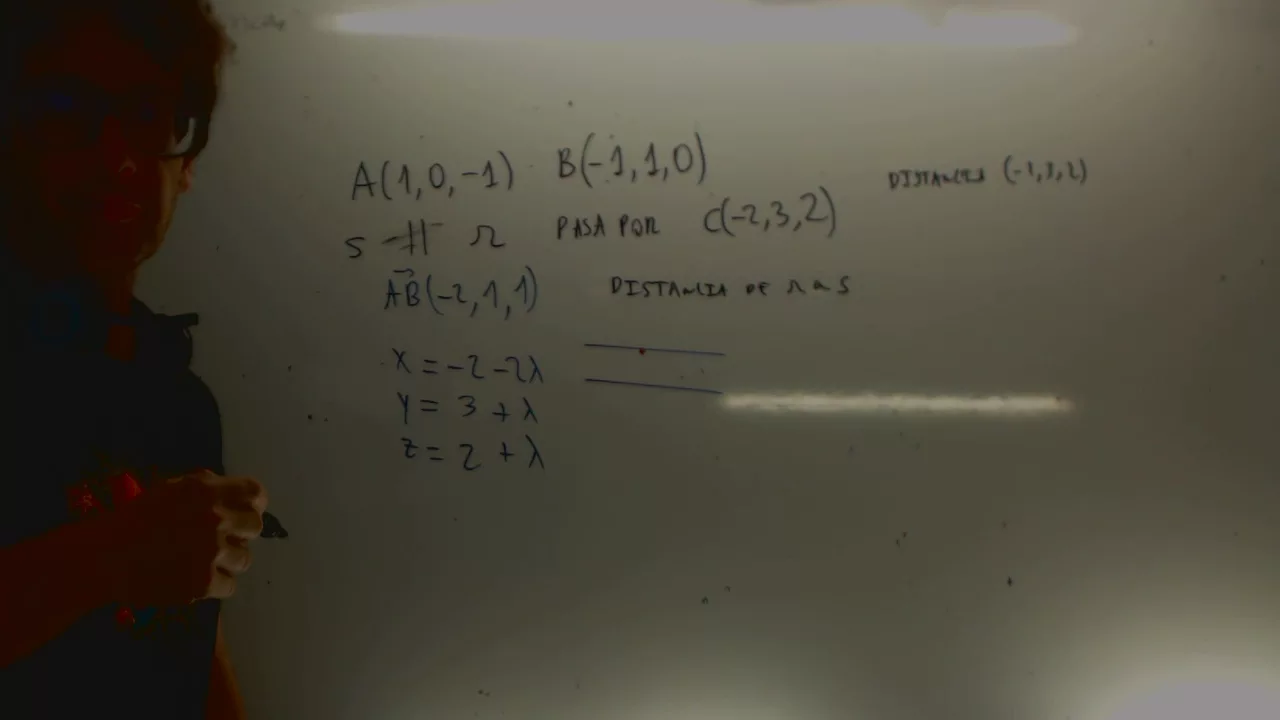 A(1,0,-1) B(-1,1,0)
DISTANCIA (-1,3,2)
S || r PASA POR C(-2,3,2)
AB(-2,1,1) DISTANCIA DE r a S
X = -2 -2λ
Y = 3 + λ
Z = 2 + λ